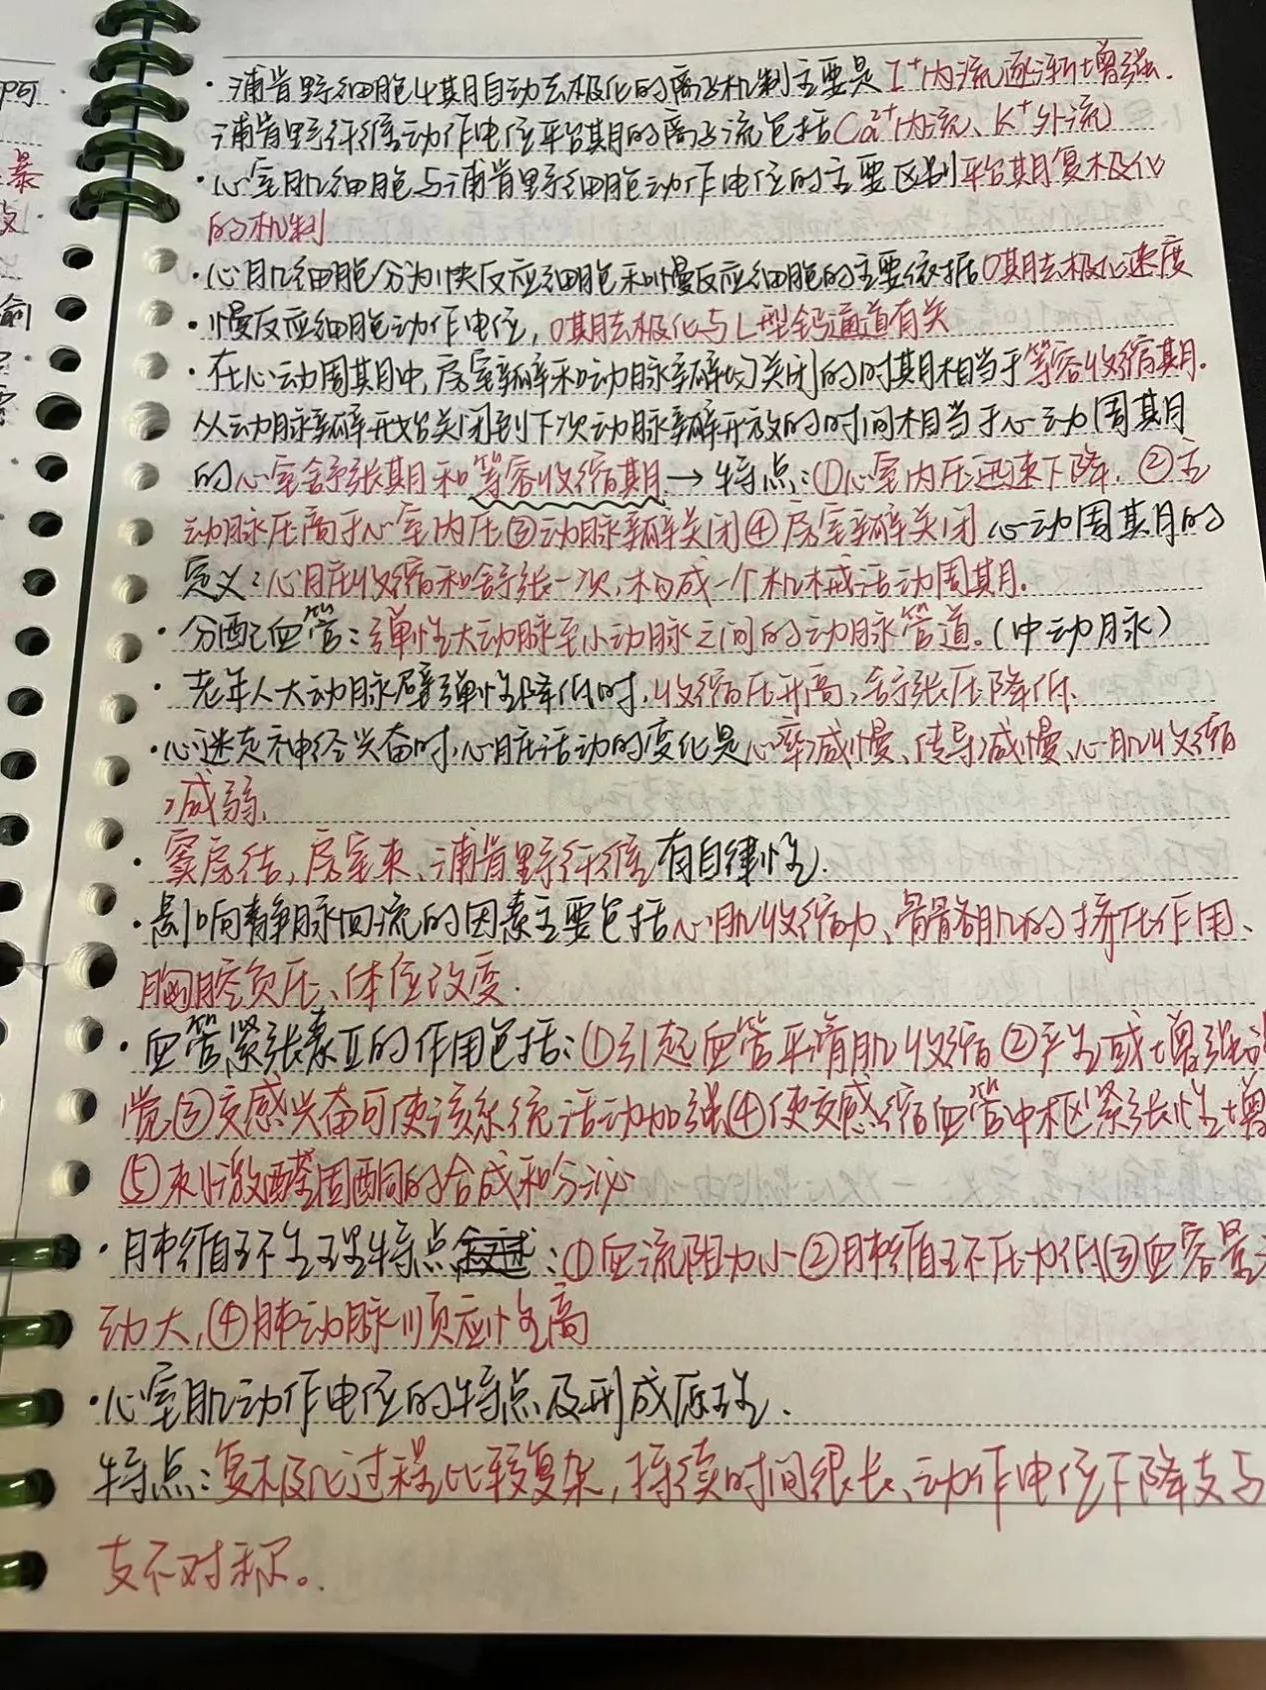 ·浦肯野细胞4期自动去极化的离子机制主要是I⁺内流逐渐增强.
浦肯野纤维动作电位平台期的离子流包括Ca²⁺内流、K⁺外流
·心室肌细胞与浦肯野细胞动作电位的主要区别平台期复极化
的机制
·心肌细胞分为快反应细胞和慢反应细胞的主要依据0期去极化速度
·慢反应细胞动作电位,0期去极化与L型钙通道有关
·在心动周期中,房室瓣和动脉瓣均关闭的时期相当于等容收缩期.
从动脉瓣开始关闭到下次动脉瓣开放的时间相当于心动周期
的心室舒张期和等容收缩期→特点:①心室内压迅速下降.②主
动脉压高于心室内压③动脉瓣关闭④房室瓣关闭 心动周期的
定义:心脏收缩和舒张一次,构成一个机械活动周期.
·分配血管:弹性大动脉至小动脉之间的动脉管道.(中动脉)
·老年人大动脉壁弹性降低时,收缩压升高,舒张压降低.
·心迷走神经兴奋时,心脏活动的变化是心率减慢、传导减慢、心肌收缩
减弱.
·窦房结,房室束、浦肯野纤维有自律性.
·影响静脉回流的因素主要包括心肌收缩力、骨骼肌的挤压作用、
胸腔负压、体位改变.
·血管紧张素Ⅱ的作用包括:①引起血管平滑肌收缩②产生或增强
觉③交感兴奋可使该系统活动加强④使交感缩血管中枢紧张性增
⑤刺激醛固酮的合成和分泌
·肺循环生理特点:①血流阻力小②肺循环压力低③血容量
动大,④肺动脉顺应性高
·心室肌动作电位的特点及形成原理.
特点:复极化过程比较复杂,持续时间很长、动作电位下降支与
支不对称。